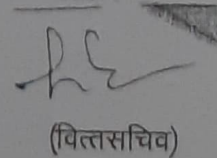 (वित्तसचिव)